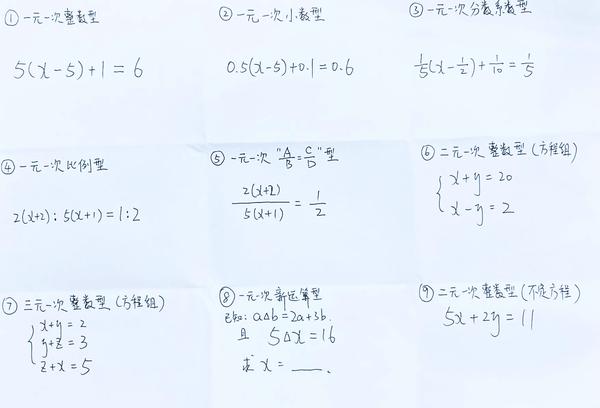 ① 一元一次整数型
5(x-5)+1=6
② 一元一次小数型
0.5(x-5)+0.1=0.6
③ 一元一次分数系数型
1/5(x-1/2)+1/10=1/5
④ 一元一次比例型
2(x+2):5(x+1)=1:2
⑤ 一元一次"A/B=C/D"型
2(x+2)/5(x+1)=1/2
⑥ 二元一次整数型(方程组)
{x+y=20
x-y=2
⑦ 三元一次整数型(方程组)
{x+y=2
y+z=3
z+x=5
⑧ 一元一次新运算型
已知:a△b=2a+3b.
且 5△x=16
求 x=___.
⑨ 二元一次整数型(不定方程)
5x+2y=11